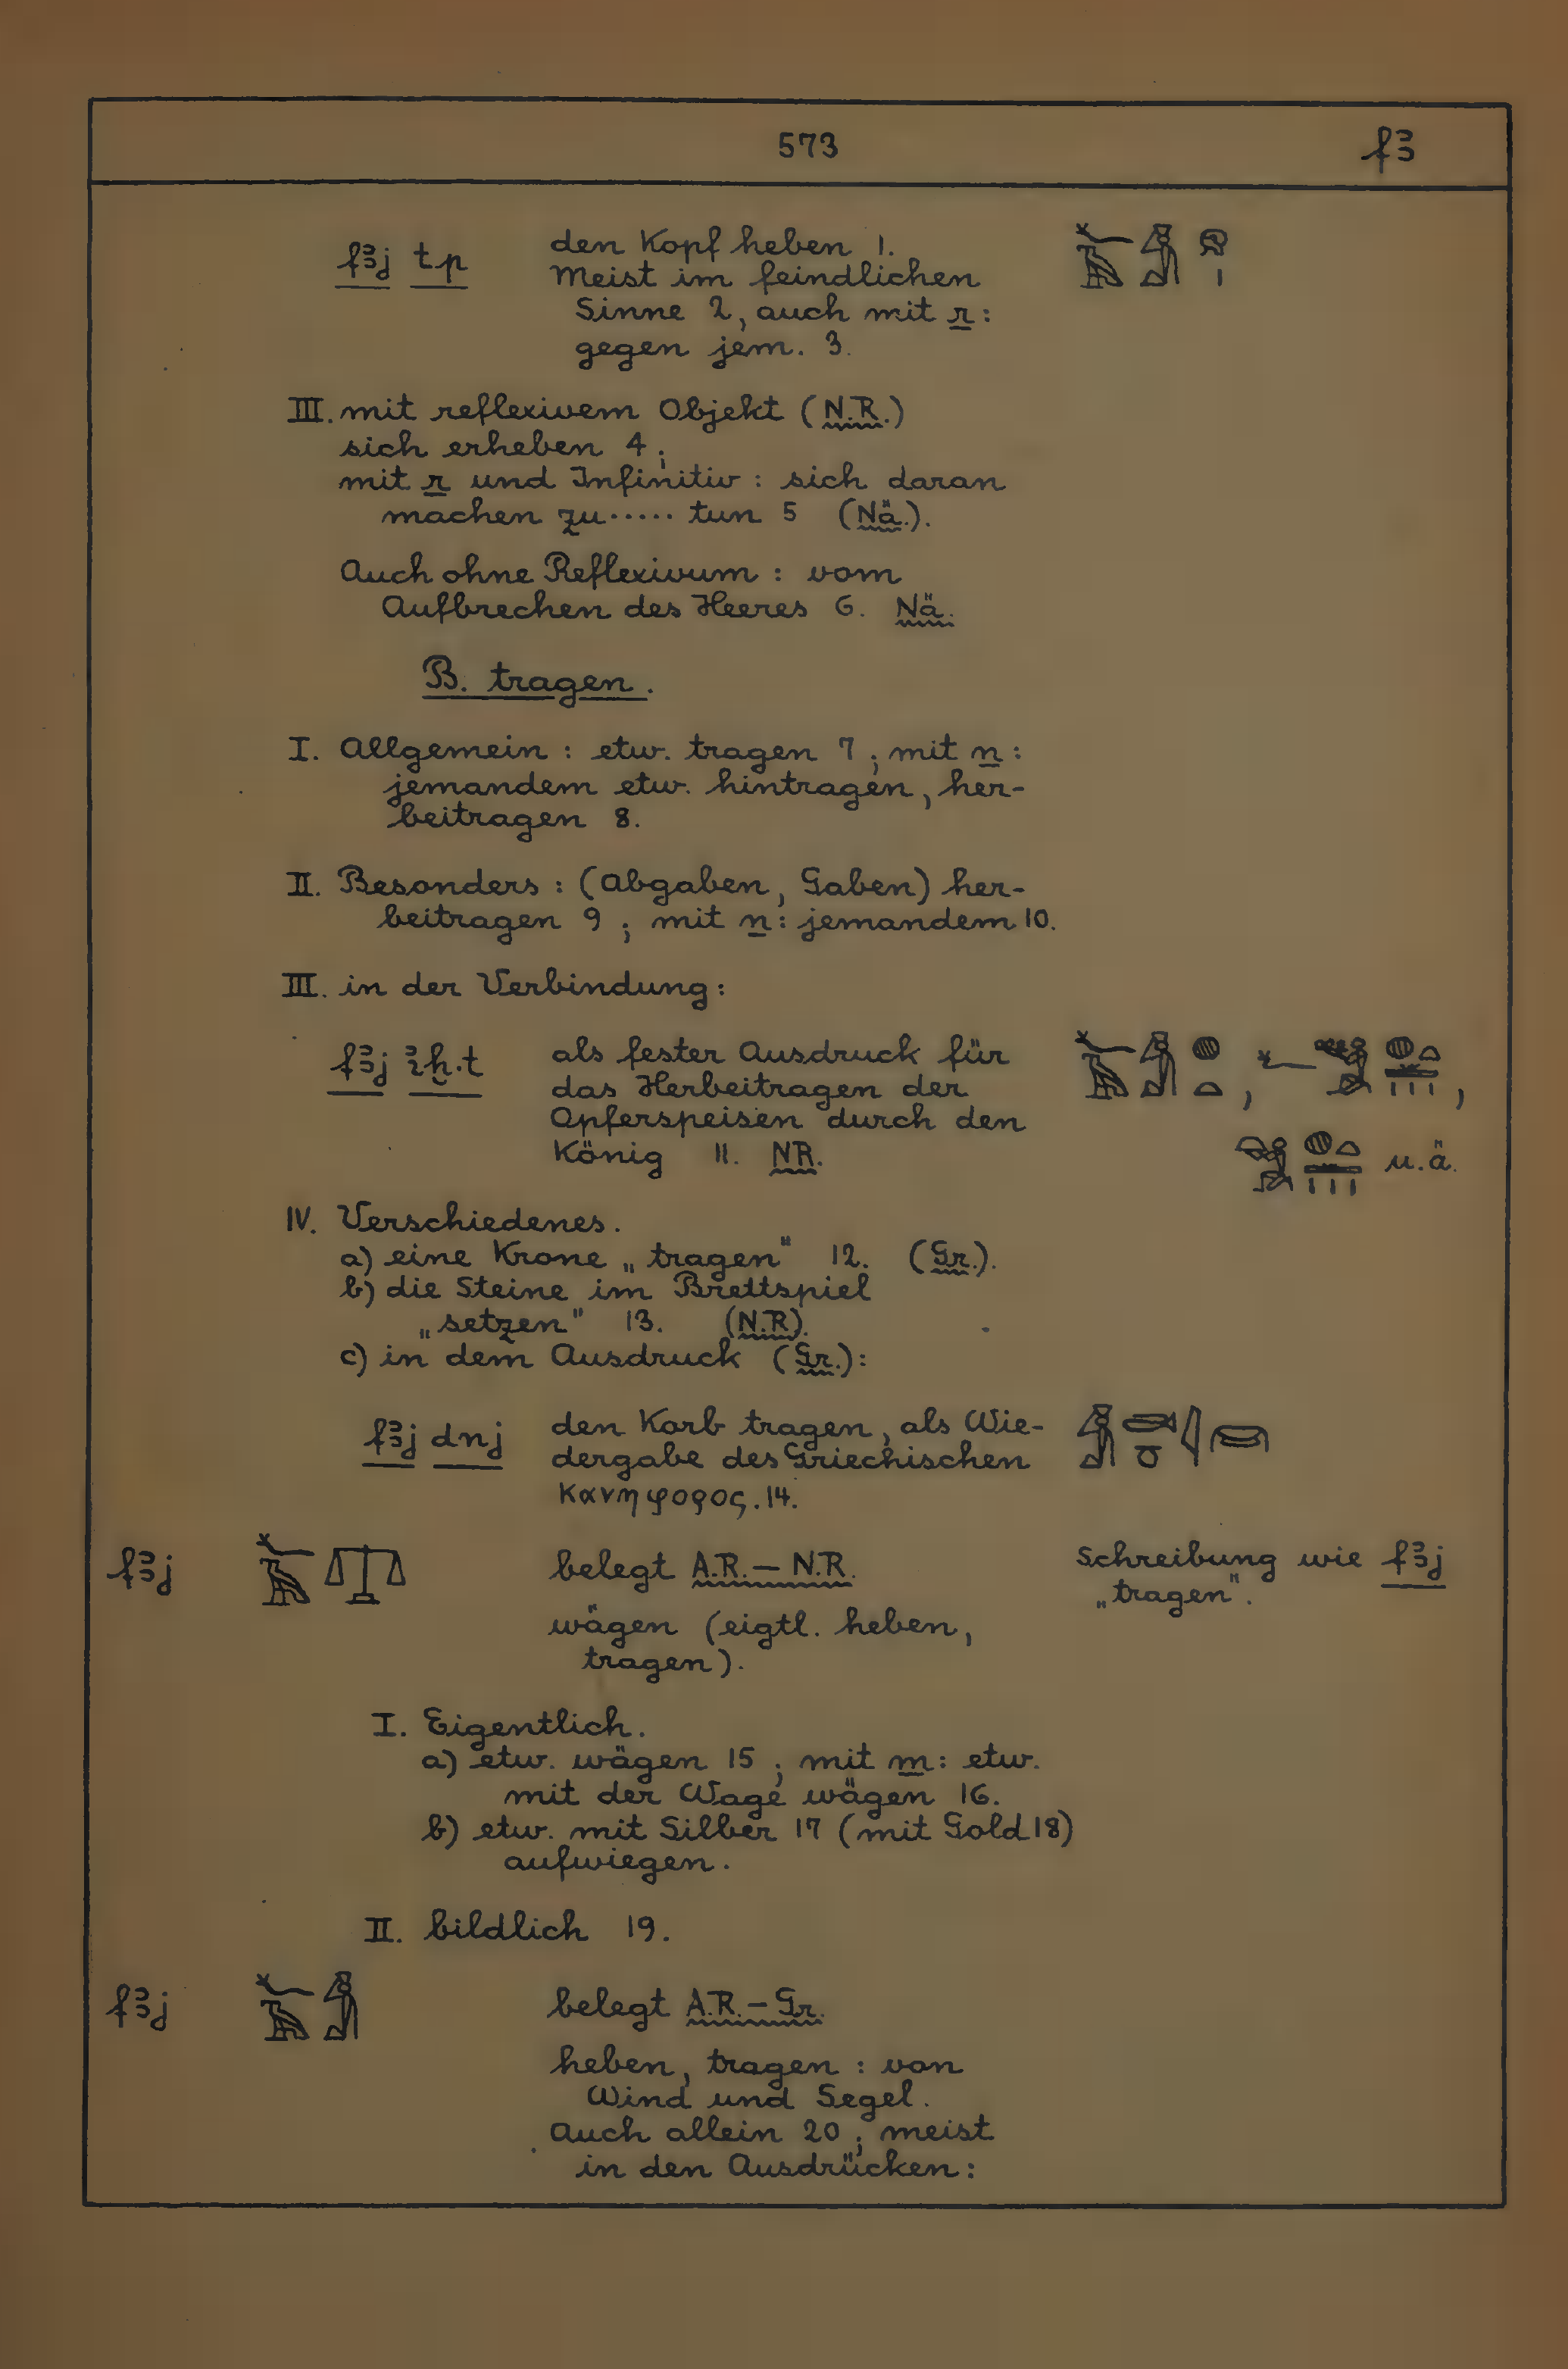 573 fꜣ
fꜣj tp den Kopf heben 1.
Meist im feindlichen
Sinne 2, auch mit r:
gegen jem. 3.
III. mit reflexivem Objekt (N.R.)
sich erheben 4;
mit r und Infinitiv: sich daran
machen zu..... tun 5 (Nä.).
Auch ohne Reflexivum: vom
Aufbrechen des Heeres 6. Nä.
B. tragen.
I. Allgemein: etw. tragen 7; mit n:
jemandem etw. hintragen, her-
beitragen 8.
II. Besonders: (Abgaben, Gaben) her-
beitragen 9; mit n: jemandem 10.
III. in der Verbindung:
fꜣj iꜣḫ.t als fester Ausdruck für
das Herbeitragen der
Opferspeisen durch den
König 11. NR. u.ä.
IV. Verschiedenes.
a) eine Krone „tragen" 12. (Gr.).
b) die Steine im Brettspiel
„setzen" 13. (N.R).
c) in dem Ausdruck (Gr.):
fꜣj dnj den Korb tragen, als Wie-
dergabe des Griechischen
κανηφορος. 14.
fꜣj belegt A.R. – N.R. Schreibung wie fꜣj
„tragen".
wägen (eigtl. heben,
tragen).
I. Eigentlich.
a) etw. wägen 15; mit m: etw.
mit der Wage wägen 16.
b) etw. mit Silber 17 (mit Gold 18)
aufwiegen.
II. bildlich 19.
fꜣj belegt A.R. – Gr.
heben, tragen: von
Wind und Segel.
Auch allein 20; meist
in den Ausdrücken: